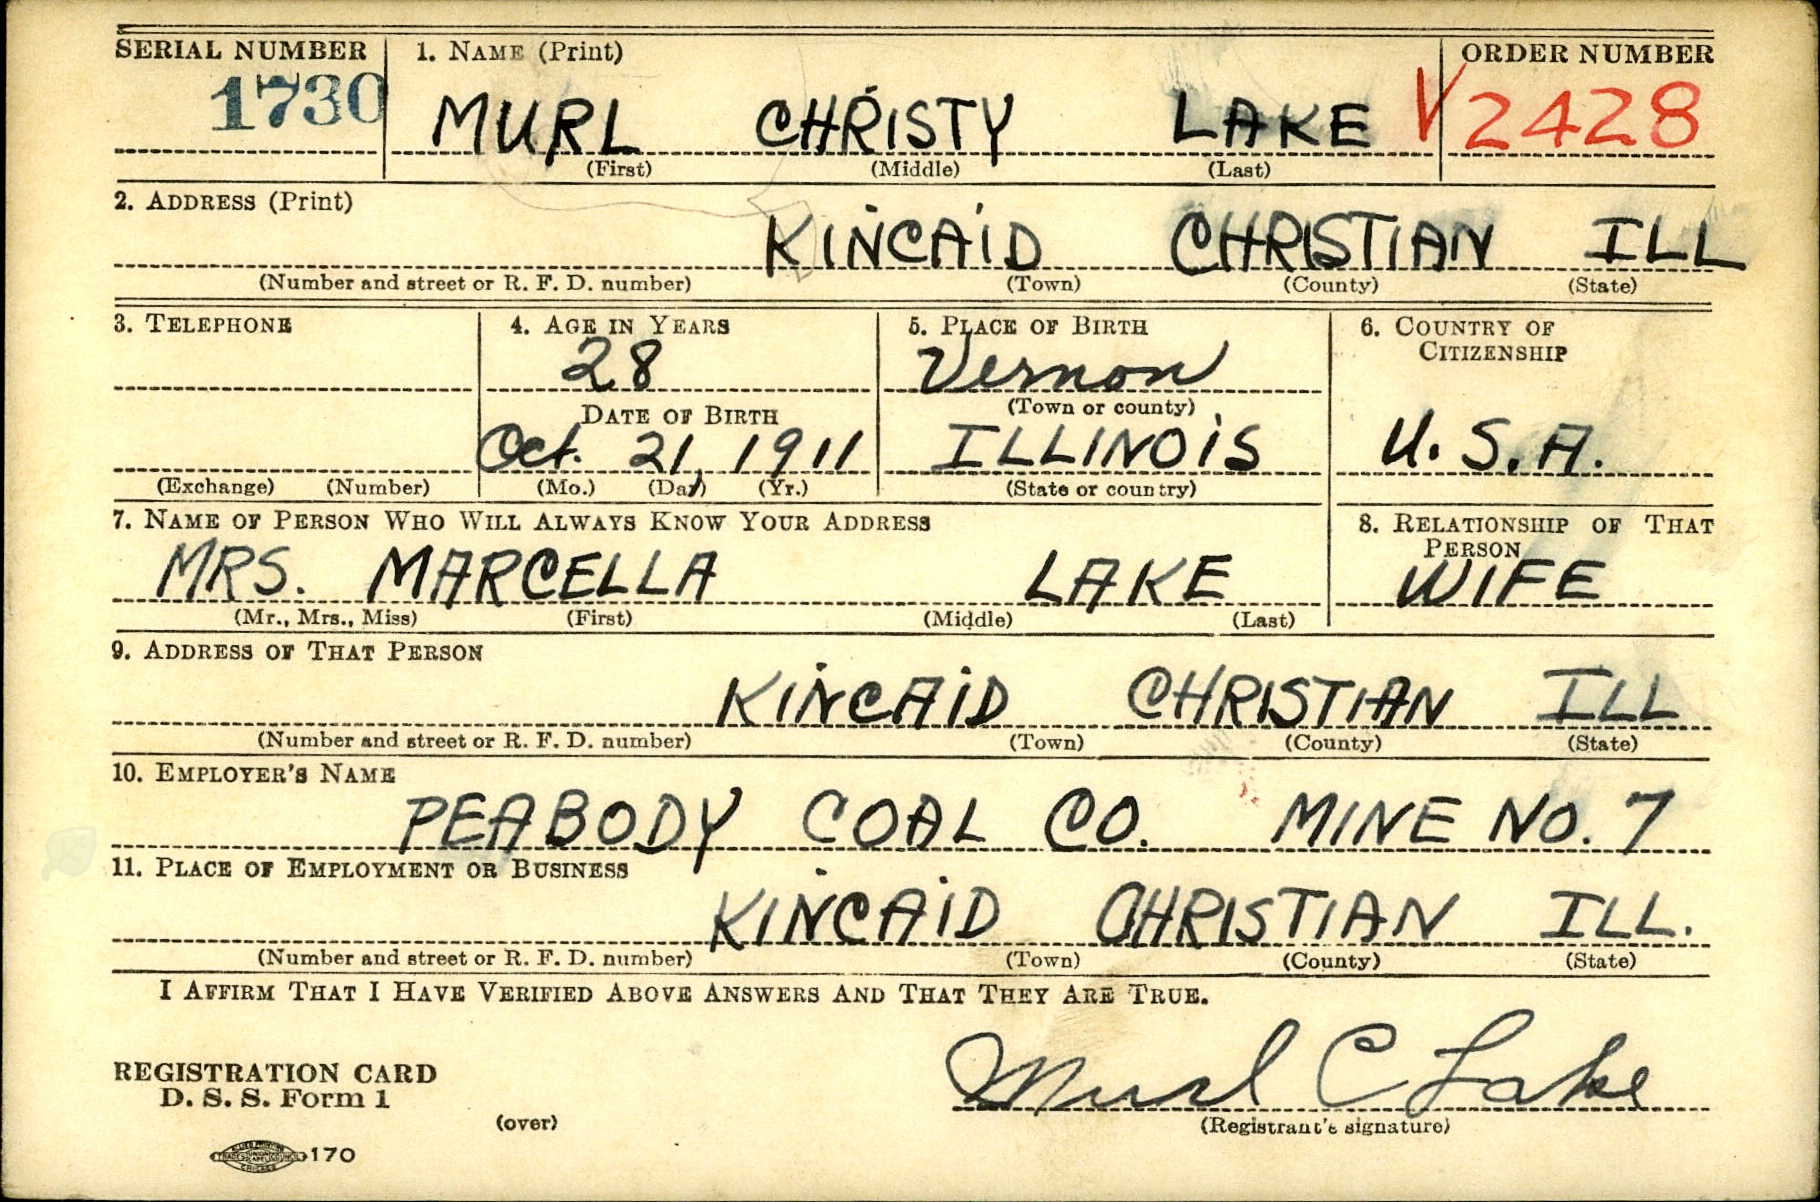 SERIAL NUMBER 1. NAME (Print) ORDER NUMBER
1730 MURL CHRISTY LAKE V2428
(First) (Middle) (Last)
2. ADDRESS (Print)
KINCAID CHRISTIAN ILL
(Number and street or R. F. D. number) (Town) (County) (State)
3. TELEPHONE 4. AGE IN YEARS 5. PLACE OF BIRTH 6. COUNTRY OF
CITIZENSHIP
28 Vernon
DATE OF BIRTH (Town or county)
Oct. 21, 1911 ILLINOIS U.S.A.
(Exchange) (Number) (Mo.) (Day) (Yr.) (State or country)
7. NAME OF PERSON WHO WILL ALWAYS KNOW YOUR ADDRESS 8. RELATIONSHIP OF THAT
PERSON
MRS. MARCELLA LAKE WIFE
(Mr., Mrs., Miss) (First) (Middle) (Last)
9. ADDRESS OF THAT PERSON
KINCAID CHRISTIAN ILL
(Number and street or R. F. D. number) (Town) (County) (State)
10. EMPLOYER'S NAME
PEABODY COAL CO. MINE NO. 7
11. PLACE OF EMPLOYMENT OR BUSINESS
KINCAID CHRISTIAN ILL.
(Number and street or R. F. D. number) (Town) (County) (State)
I AFFIRM THAT I HAVE VERIFIED ABOVE ANSWERS AND THAT THEY ARE TRUE.
Murl C Lake
REGISTRATION CARD
D. S. S. Form 1
(over) (Registrant's signature)
170